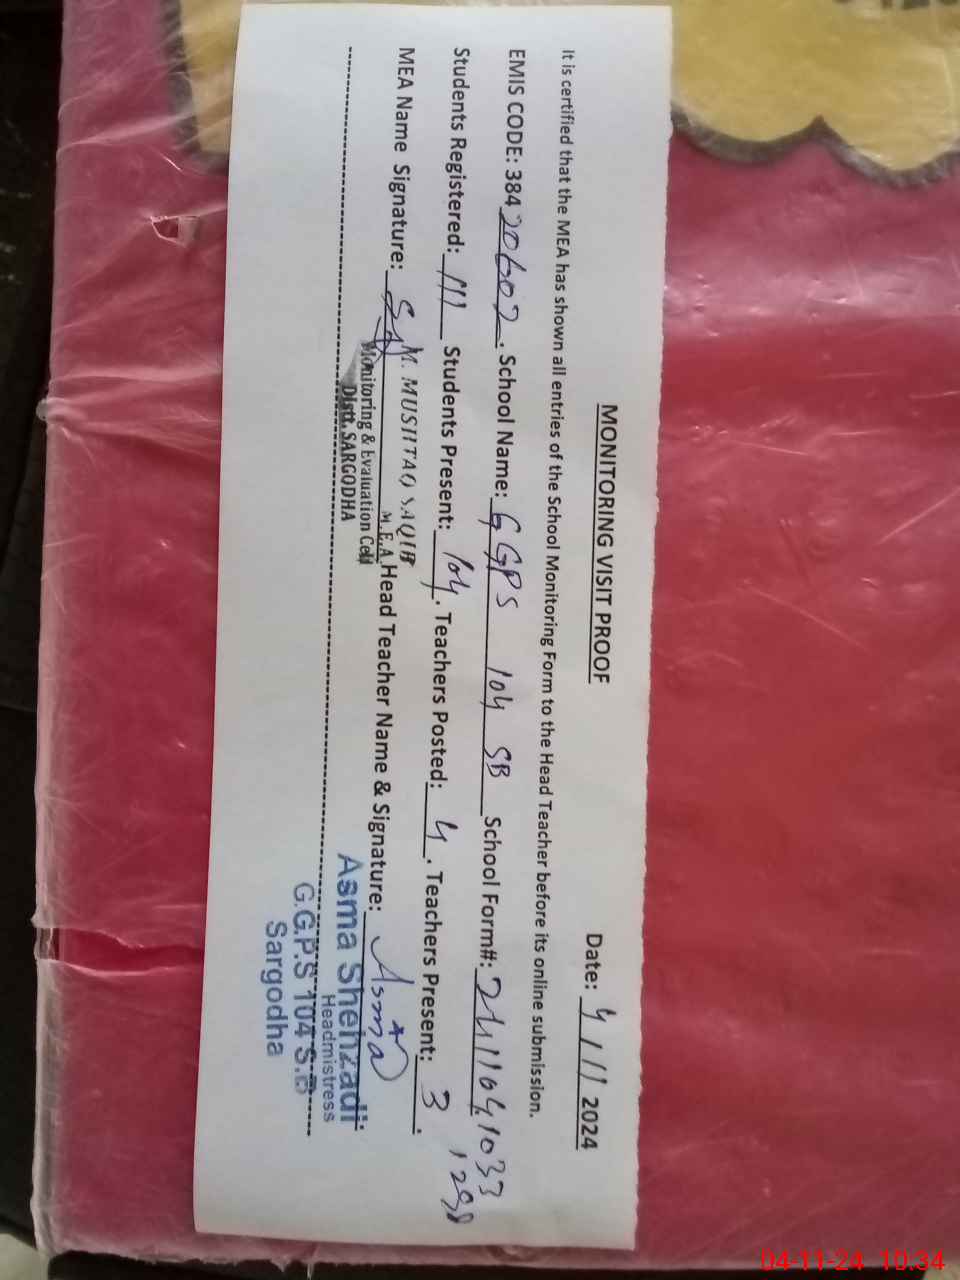 MONITORING VISIT PROOF
Date: 4/11/2024
It is certified that the MEA has shown all entries of the School Monitoring Form to the Head Teacher before its online submission.
EMIS CODE: 38420602. School Name: GGPS 104 SB School Form#: 241104,1033
,1298
Students Registered: 111 Students Present: 104. Teachers Posted: 4. Teachers Present: 3.
MEA Name Signature: Head Teacher Name & Signature: Asma
M. MUSHTAQ SAQIB
M.E.A
Monitoring & Evaluation Cell
Distt. SARGODHA
Asma Shehzadi
Headmistress
G.G.P.S 104 S.B
Sargodha
04-11-24 10:34